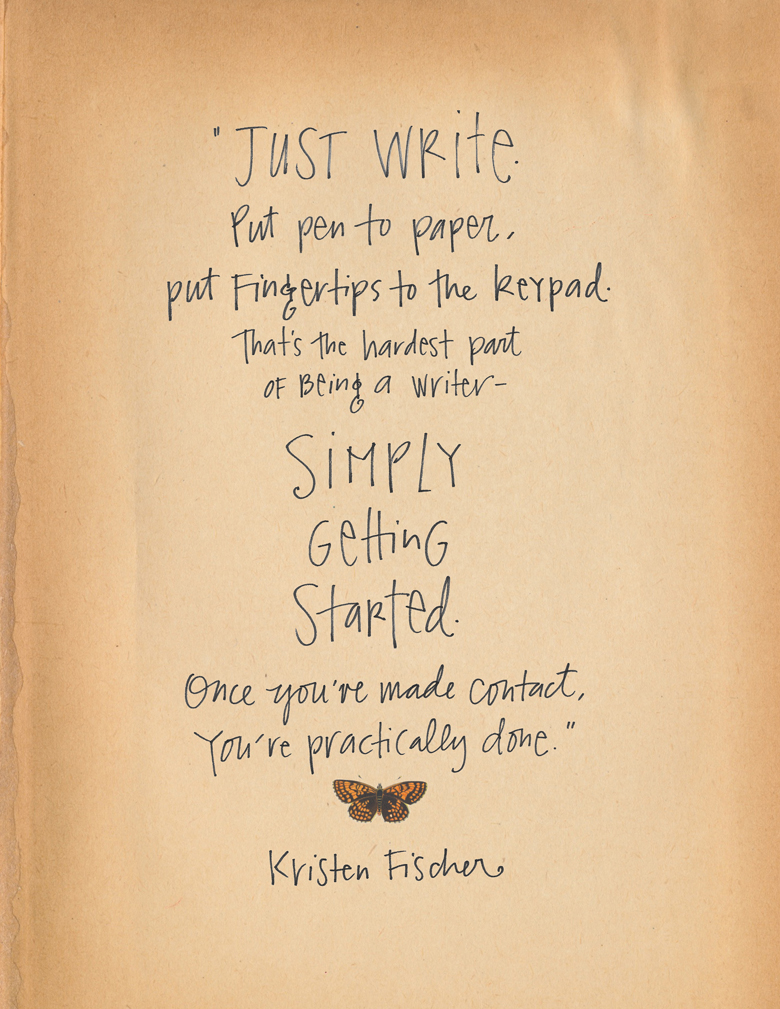 "JUST WRite.
Put pen to paper,
put Fingertips to the keypad.
That's the hardest part
OF Being a writer-
SiMPLY
GettinG
StaRted.
Once you've made contact,
You're practically done."
Kristen Fischer